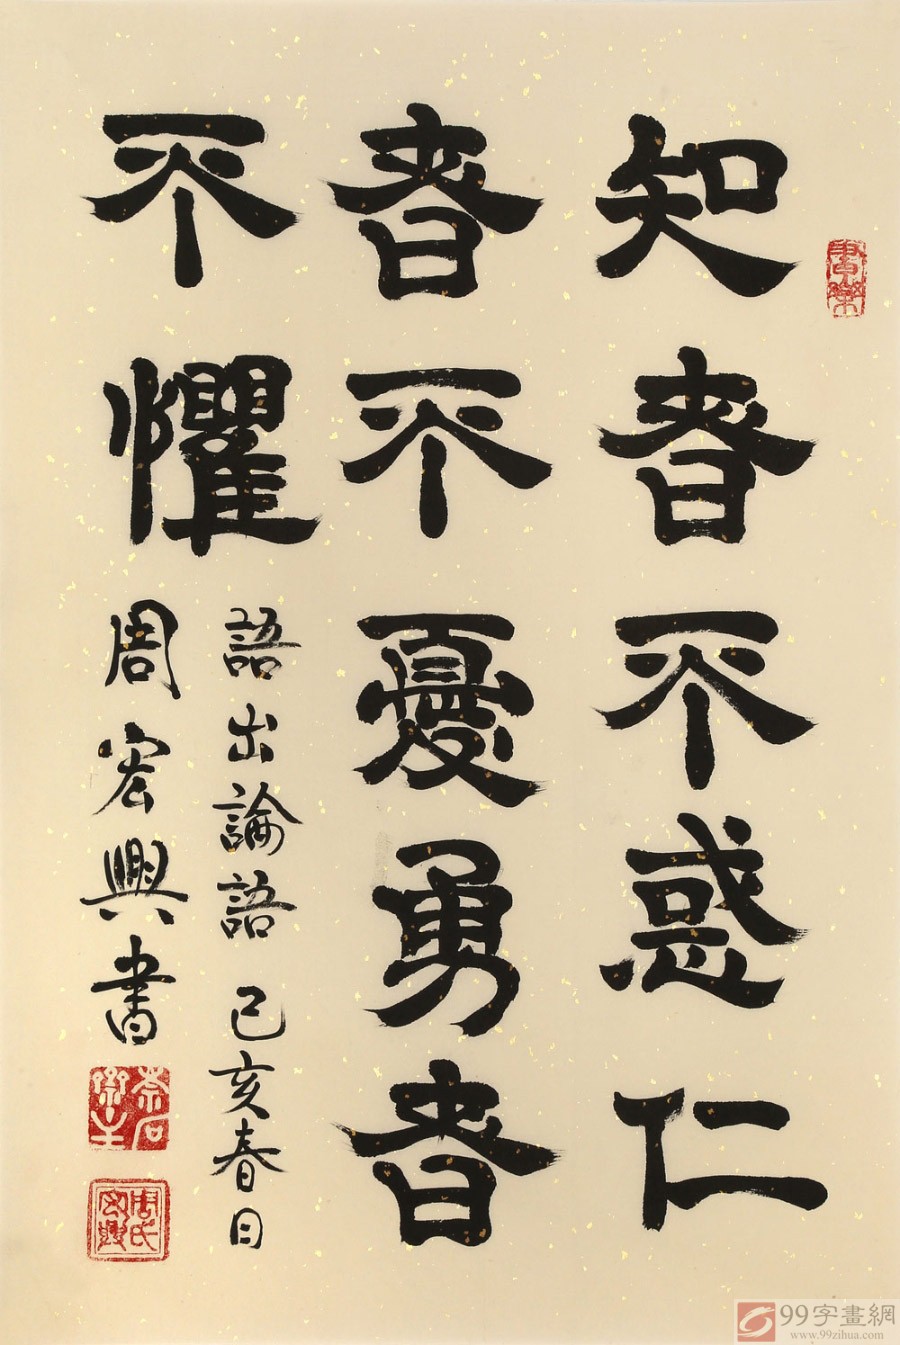 知者不惑仁
者不憂勇者
不懼
語出論語 己亥春日
周宏興書
99字畫網
www.99zihua.com